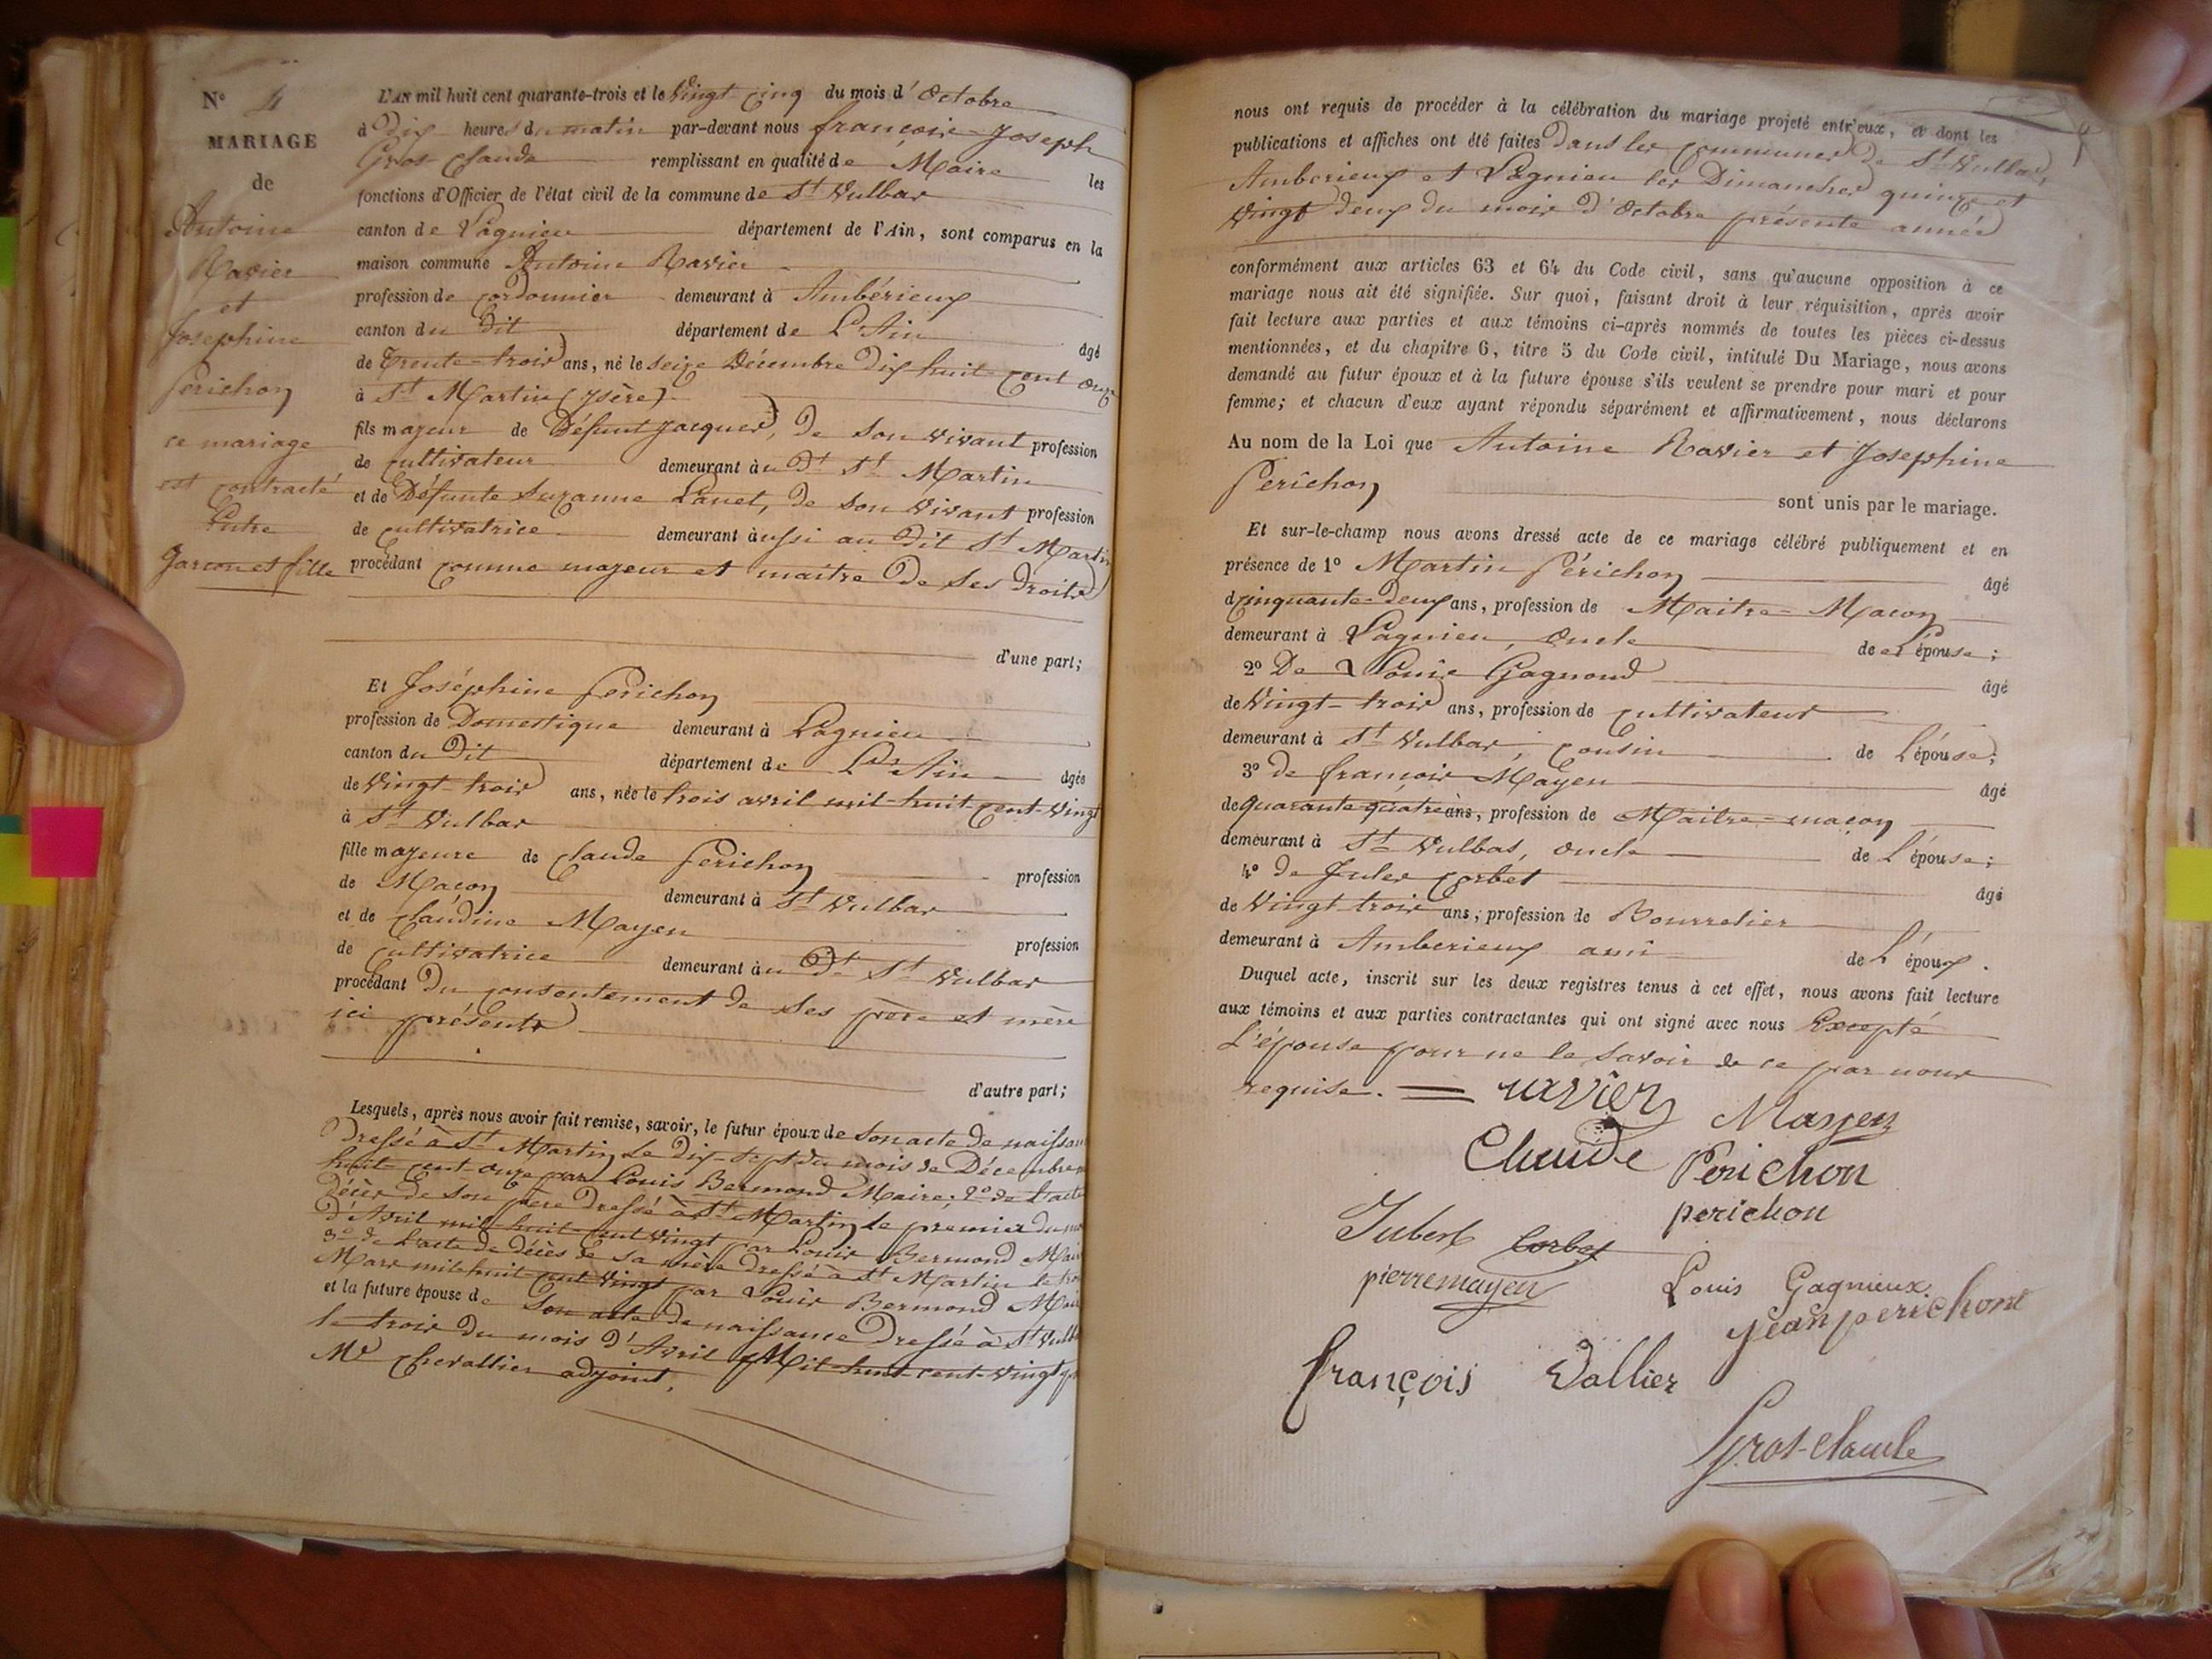 N° 4
MARIAGE
de
Antoine
Ravier
et
Josephine
Perichon
ce mariage
est contracté
Entre
garcon et fille
L'AN mil huit cent quarante-trois et le Vingt cinq du mois d'Octobre
à Dix heures du matin par-devant nous françois-Joseph
Gros claude remplissant en qualité de Maire les
fonctions d'Officier de l'état civil de la commune de St Vulbas
canton de Lagnieu département de l'Ain, sont comparus en la
maison commune Antoine Ravier
profession de cordonnier demeurant à Ambérieux
canton du dit département de L'Ain âgé
de Trente-trois ans, né le seize Décembre Dix huit-cent onze
à St Martin (ysère)
fils majeur de Défunt Jacques, de son vivant profession
de cultivateur demeurant àu dt St Martin
et de Défunte Suzanne Lanet, de son vivant profession
de cultivatrice demeurant àussi au dit St Martin
procédant comme majeur et maitre de ses droits
d'une part;
Et Joséphine Perichon
profession de Domestique demeurant à Lagnieu
canton du Dit département de L'Ain âgée
de Vingt-trois ans, née le trois avril mil-huit-cent-vingt
à St Vulbas
fille majeure de claude Perichon profession
de Macon demeurant à St Vulbas
et de claudine Mayen profession
de cultivatrice demeurant àu dt St Vulbas
procédant du consentement de ses père et mère
ici présents
d'autre part;
Lesquels, après nous avoir fait remise, savoir, le futur époux de son acte de naissan
Dressé à St Martin le dix-sept du mois de Décembre
huit-cent-onze par Louis Bermond Maire; 2° de l'acte
décès de son père Dressé à St Martin le premier du
d'Avril mil-huit-cent vingt par Louis Bermond Mair
3° de l'acte de décès de sa mère Dressé à St Martin le
Mars mil-huit-cent Vingt par Louis Bermond Mair
et la future épouse de son acte de naissance Dressé à St Vulba
le trois du mois d'Avril Mil-huit-cent-vingt
Mr chevallier adjoint.
nous ont requis de procéder à la célébration du mariage projeté entr'eux, et dont les
publications et affiches ont été faites dans les communes de St Vulbas,
Amberieux et Lagnieu les Dimanches quinze et
vingt deux du mois d'Octobre présente année
conformément aux articles 63 et 64 du Code civil, sans qu'aucune opposition à ce
mariage nous ait été signifiée. Sur quoi, faisant droit à leur réquisition, après avoir
fait lecture aux parties et aux témoins ci-après nommés de toutes les pièces ci-dessus
mentionnées, et du chapitre 6, titre 5 du Code civil, intitulé Du Mariage, nous avons
demandé au futur époux et à la future épouse s'ils veulent se prendre pour mari et pour
femme; et chacun d'eux ayant répondu séparément et affirmativement, nous déclarons
Au nom de la Loi que Antoine Ravier et Josephine
Perichon sont unis par le mariage.
Et sur-le-champ nous avons dressé acte de ce mariage célébré publiquement et en
présence de 1° Martin Périchon âgé
de cinquante-deux ans, profession de Maitre-Macon
demeurant à Lagnieu, oncle de l'épouse;
2° De Louis Gagnoud âgé
de Vingt-trois ans, profession de cultivateur
demeurant à St Vulbas, cousin de l'épouse;
3° de françois Mayen âgé
de quarante-quatre ans, profession de Maitre-maçon
demeurant à St Vulbas, oncle de l'épouse;
4° de Jules corbet âgé
de Vingt-trois ans, profession de Bourrelier
demeurant à Amberieux ami de l'époux.
Duquel acte, inscrit sur les deux registres tenus à cet effet, nous avons fait lecture
aux témoins et aux parties contractantes qui ont signé avec nous Excepté
L'épouse pour ne le savoir de ce par nous
requise. = ravier Mayen
Claude Perichon
perichon
Jubert Corbet
pierre mayen Louis Gagnieux
jean perichont
françois Vallier
Gros-claude